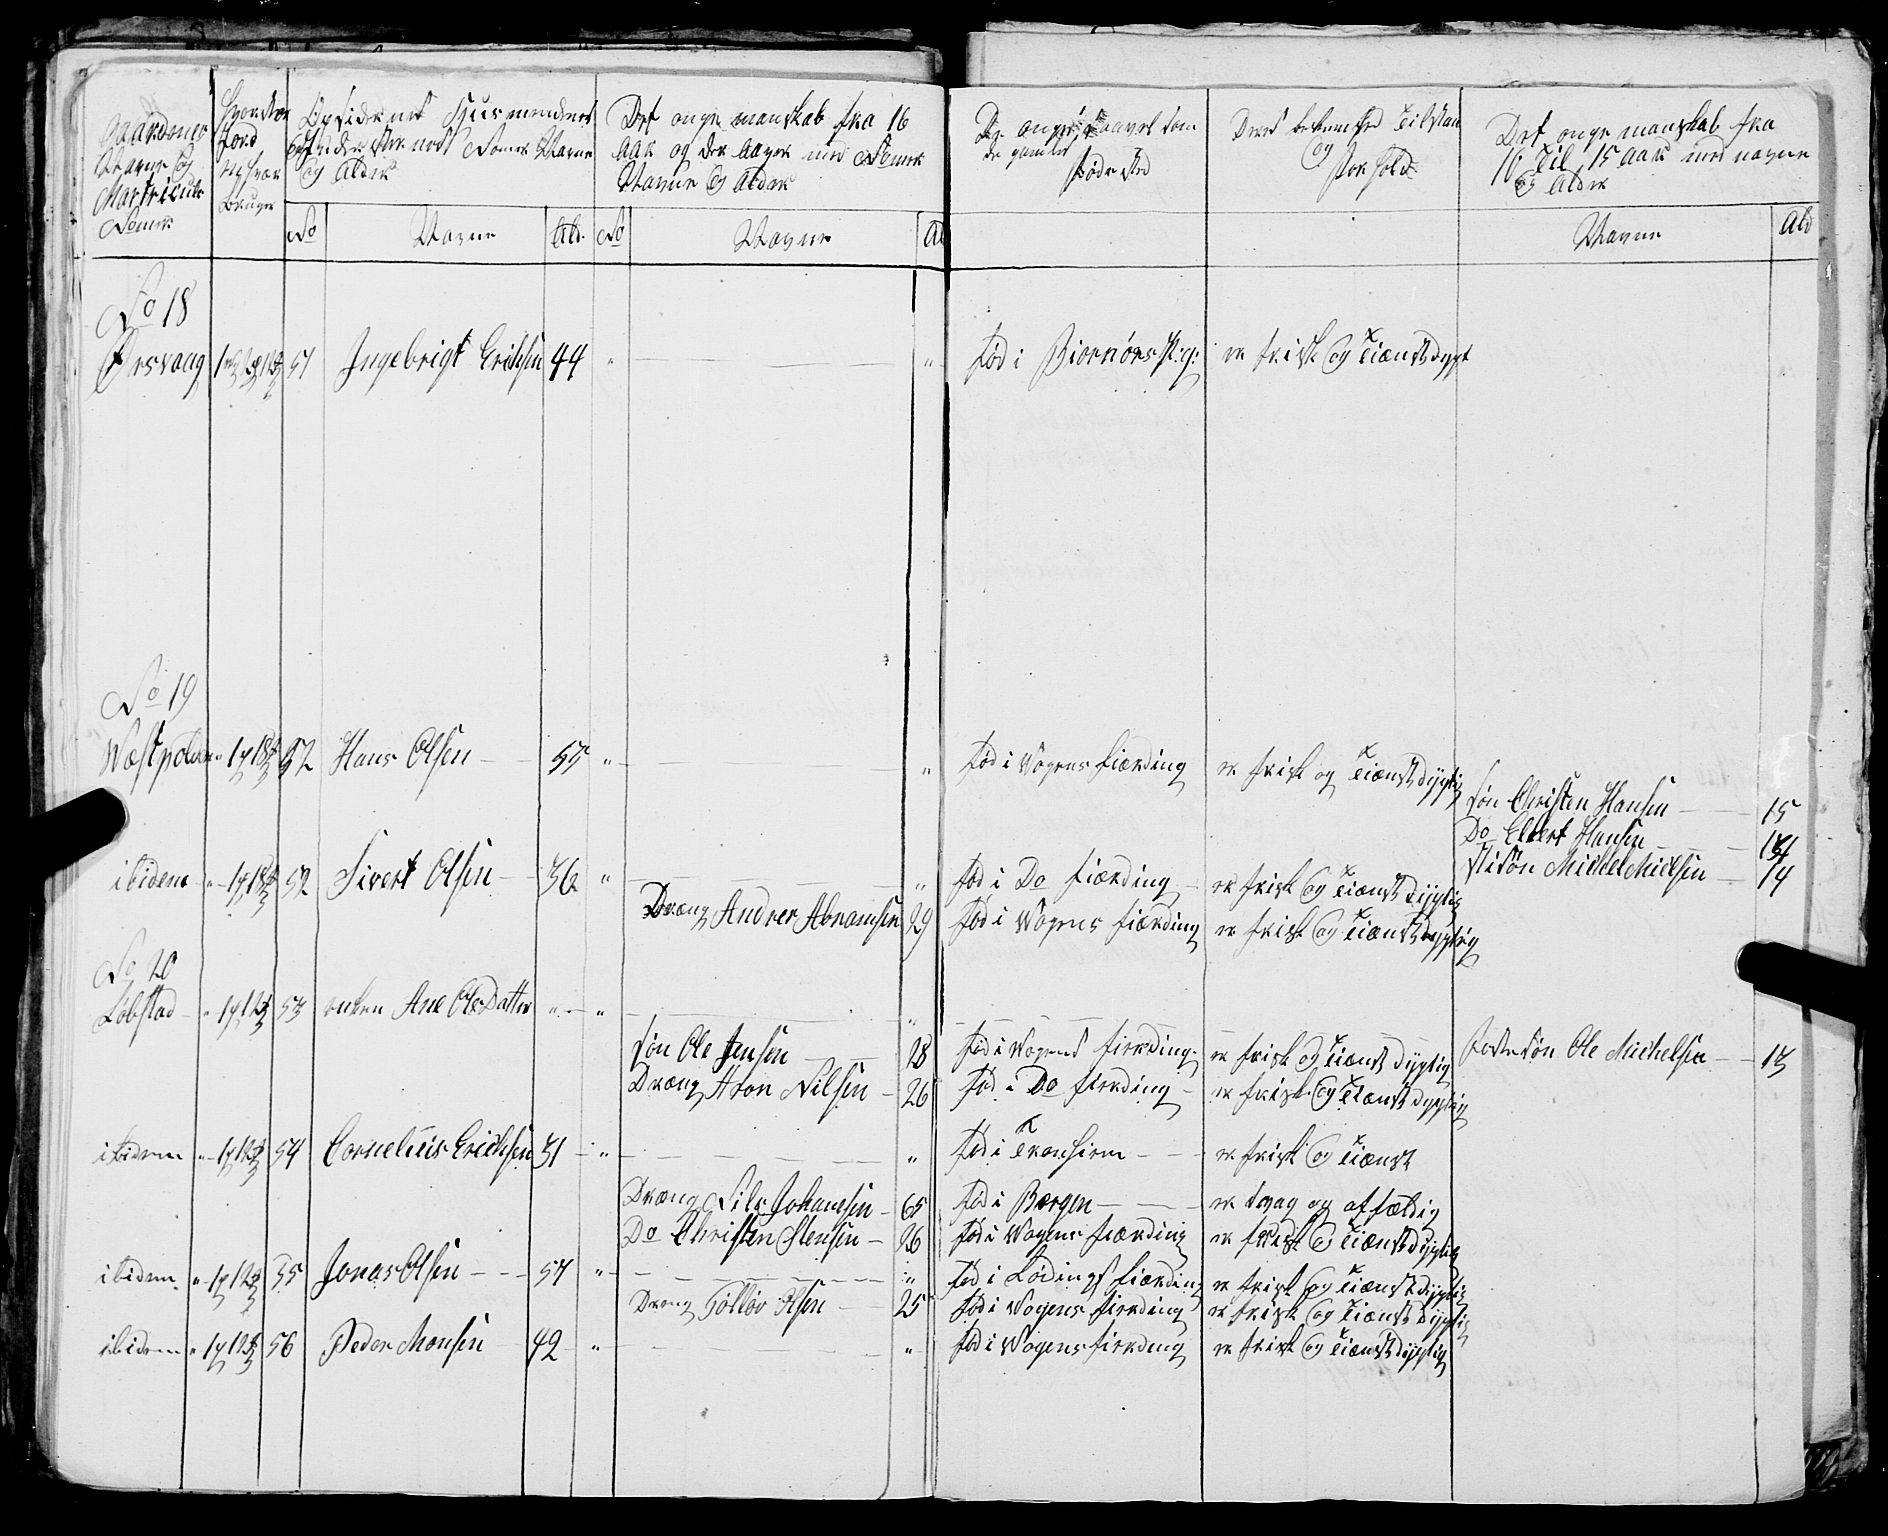 Gaardenes Navne og Martricul Nomer
Jord Bruger
Opsidernes Husmendenes Nomer Navne og Alder
Det onge manskab fra 16 Aar og der Aaver med Nomer Navne og Alder
De onge saavel som de gamles føde sted
Deres Tilstan og forhold
Det onge manskab fra 10 Til 15 Aar med navne og Alder
No Navne Ald. No Navne Al Navne Ald
No 18
Ørsvaag 51 Ingebrigt Erichsen 44 " " fød i Biornørs er frisk og Tiænstdygt
No 19
Hans Olsen 55 " " fød i Vogens fiærding er frisk og Tiænstdygtig
søn Christen Hansen 15
Do Elbert Hansen
ibidem 52 Sivert Olsen 36 " " fød i Do fiærding er frisk og Tiænstdygtig Stisøn Michel Nielsen 14
Dræng Andrer Abramsen 29 fød i Vogens fiærding er frisk og Tiænstdygtig
No 20
Løbstad 53 enken Ane OlsDatter " "
søn Ole Jensen 28 fød i Vogens fierding er frisk og Tiænstdygtig fostersøn Ole Michelsen 13
Dræng Aron Nilsen 26 fød i Do fierding er frisk og Tiænstdygtig
ibidem 54 Cornelius Erichsen 31 " " fød i Tronhiem er frisk og Tiænst
Dræng Nils Johansen 65 fød i Bergen er svag og affældig
Do Christen Stensen 26 fød i Vogens fiærding er frisk og Tiænstdygtig
ibidem 55 Jonas Olsen 57 " " fød i Lødings fiærding er frisk og Tiænstdygtig
Dræng Tollöv Olsen 25 fød i Vogens fierding er frisk og Tiænstdygtig
ibidem 56 Peder Monsen 42 " " fød i Vogens fierding er frisk og Tiænstdygtig